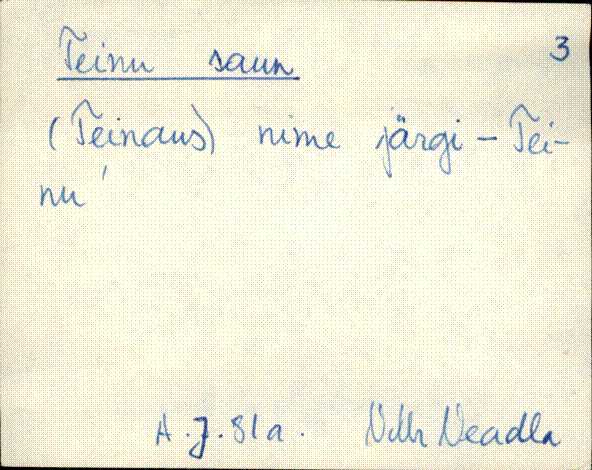 Teinu saun 3
(Teinaus) nime järgi – Tei-
nu'
A. J. 81a. Neadla